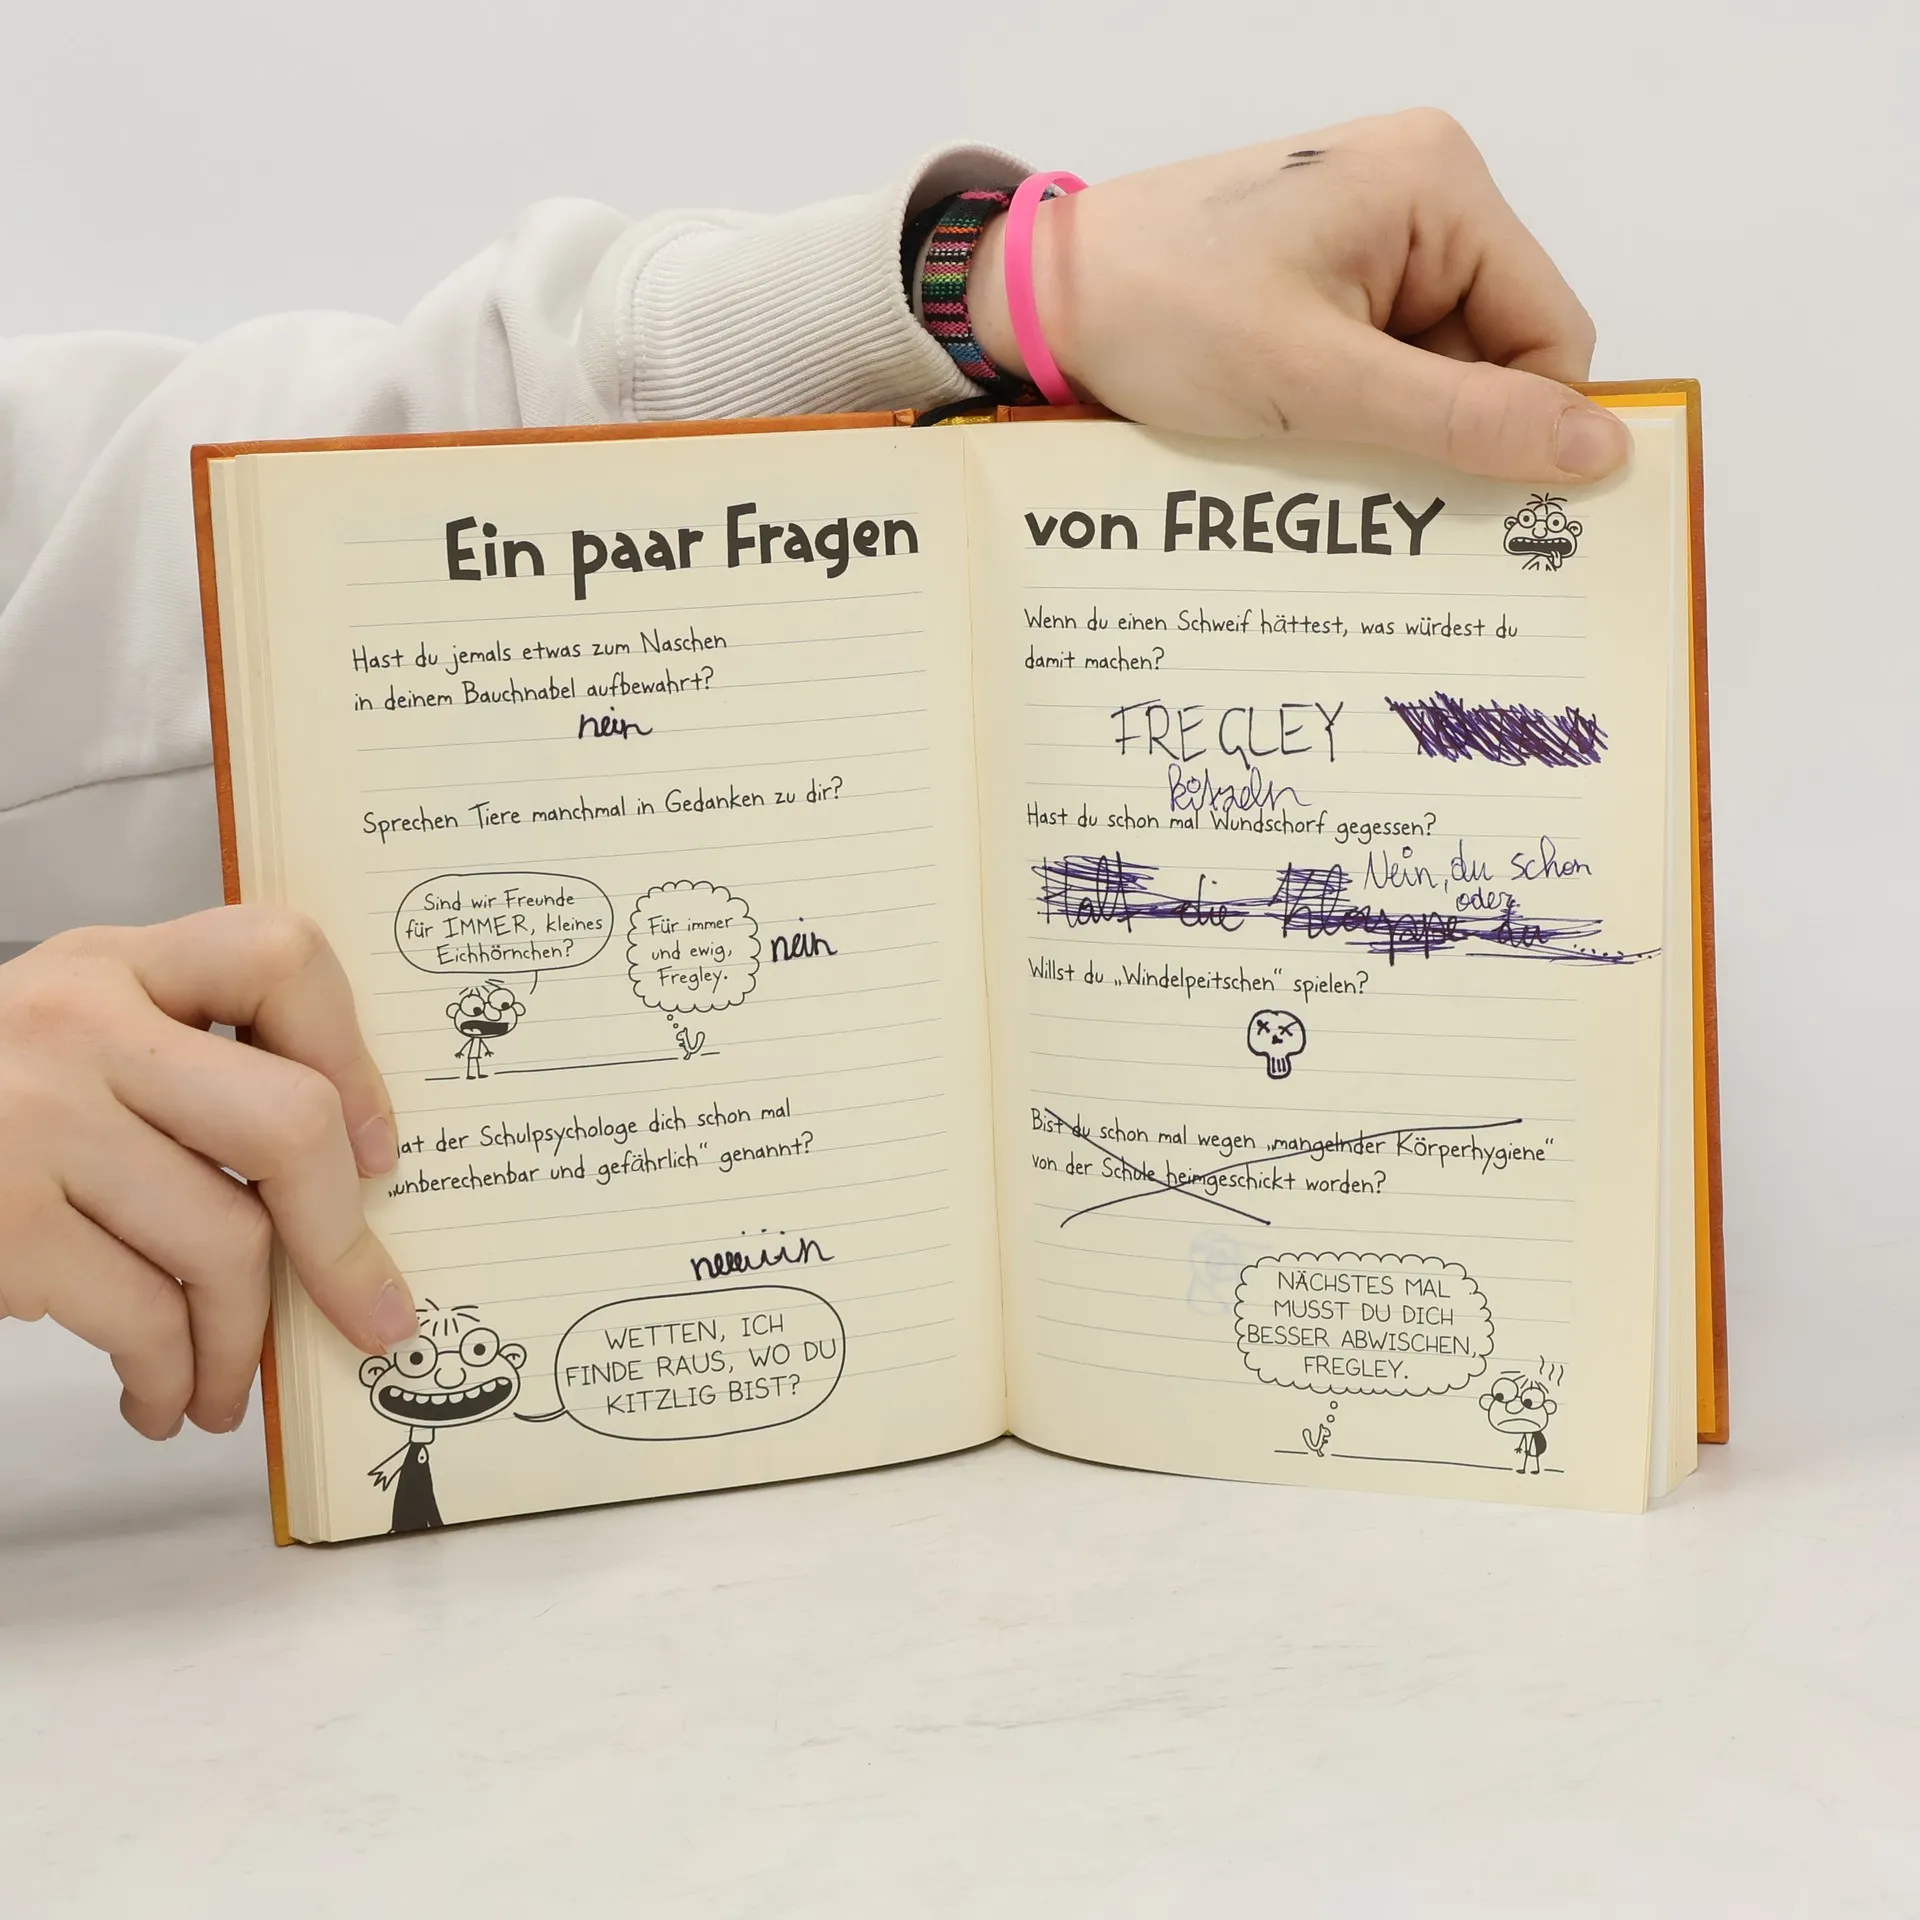 Ein paar Fragen
Hast du jemals etwas zum Naschen
in deinem Bauchnabel aufbewahrt?
nein
Sprechen Tiere manchmal in Gedanken zu dir?
Sind wir Freunde
für IMMER, kleines
Eichhörnchen?
Für immer
und ewig,
Fregley.
nein
at der Schulpsychologe dich schon mal
„unberechenbar und gefährlich“ genannt?
neeeiiiin
WETTEN, ICH
FINDE RAUS, WO DU
KITZLIG BIST?
von FREGLEY
Wenn du einen Schweif hättest, was würdest du
damit machen?
FREGLEY
kitzeln
Hast du schon mal Wundschorf gegessen?
Nein, du schon
oder
Halt die Klappe du
Willst du „Windelpeitschen“ spielen?
Bist du schon mal wegen „mangelnder Körperhygiene“
von der Schule heimgeschickt worden?
NÄCHSTES MAL
MUSST DU DICH
BESSER ABWISCHEN,
FREGLEY.